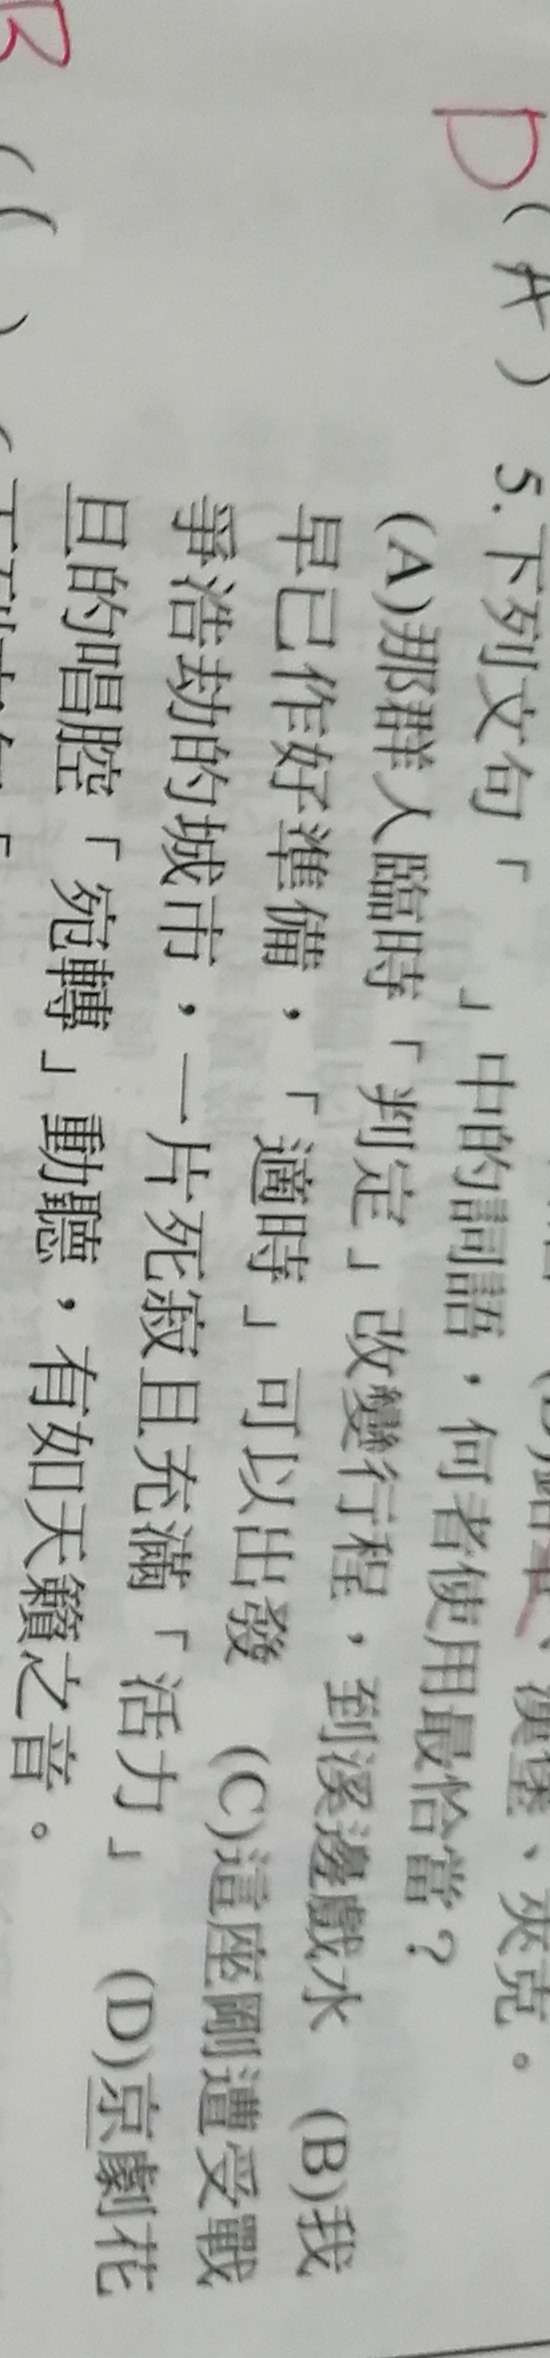 (D)鉛筆、漢堡、夾克。
D(A) 5.下列文句「　　」中的詞語，何者使用最恰當？
(A)那群人臨時「判定」改變行程，到溪邊戲水　(B)我
早已作好準備，「適時」可以出發　(C)這座剛遭受戰
爭浩劫的城市，一片死寂且充滿「活力」　(D)京劇花
旦的唱腔「宛轉」動聽，有如天籟之音。
B(